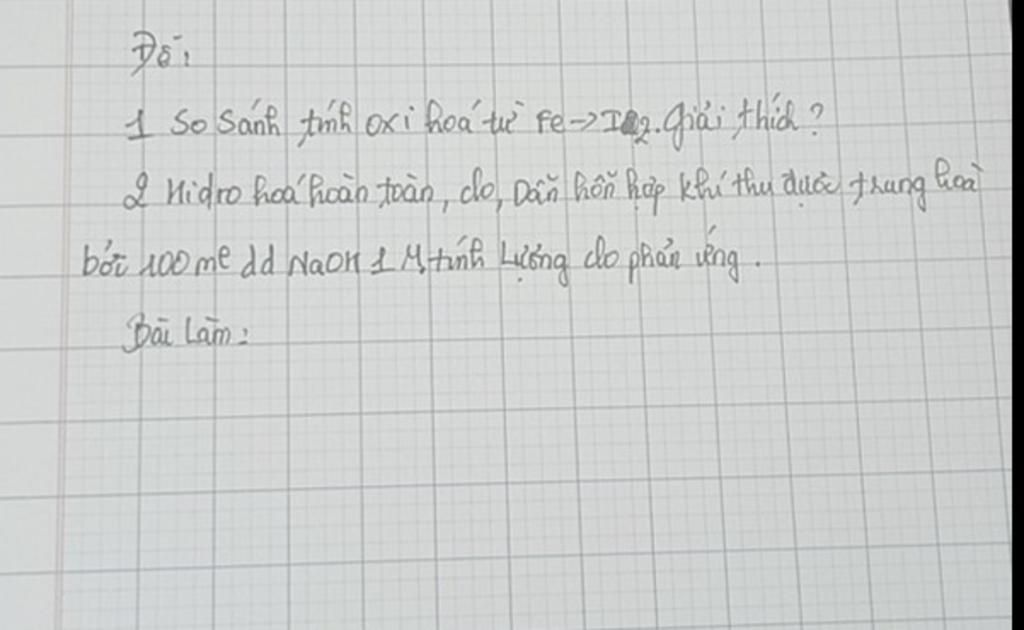 Đề:
1 So sánh tính oxi hoá từ Fe->I2. Giải thích?
2 Hidro hoá hoàn toàn, clo, Dẫn hỗn hợp khí thu được trung hoà
bởi 100ml dd NaOH 1M, tính Lượng clo phản ứng.
Bài Làm: